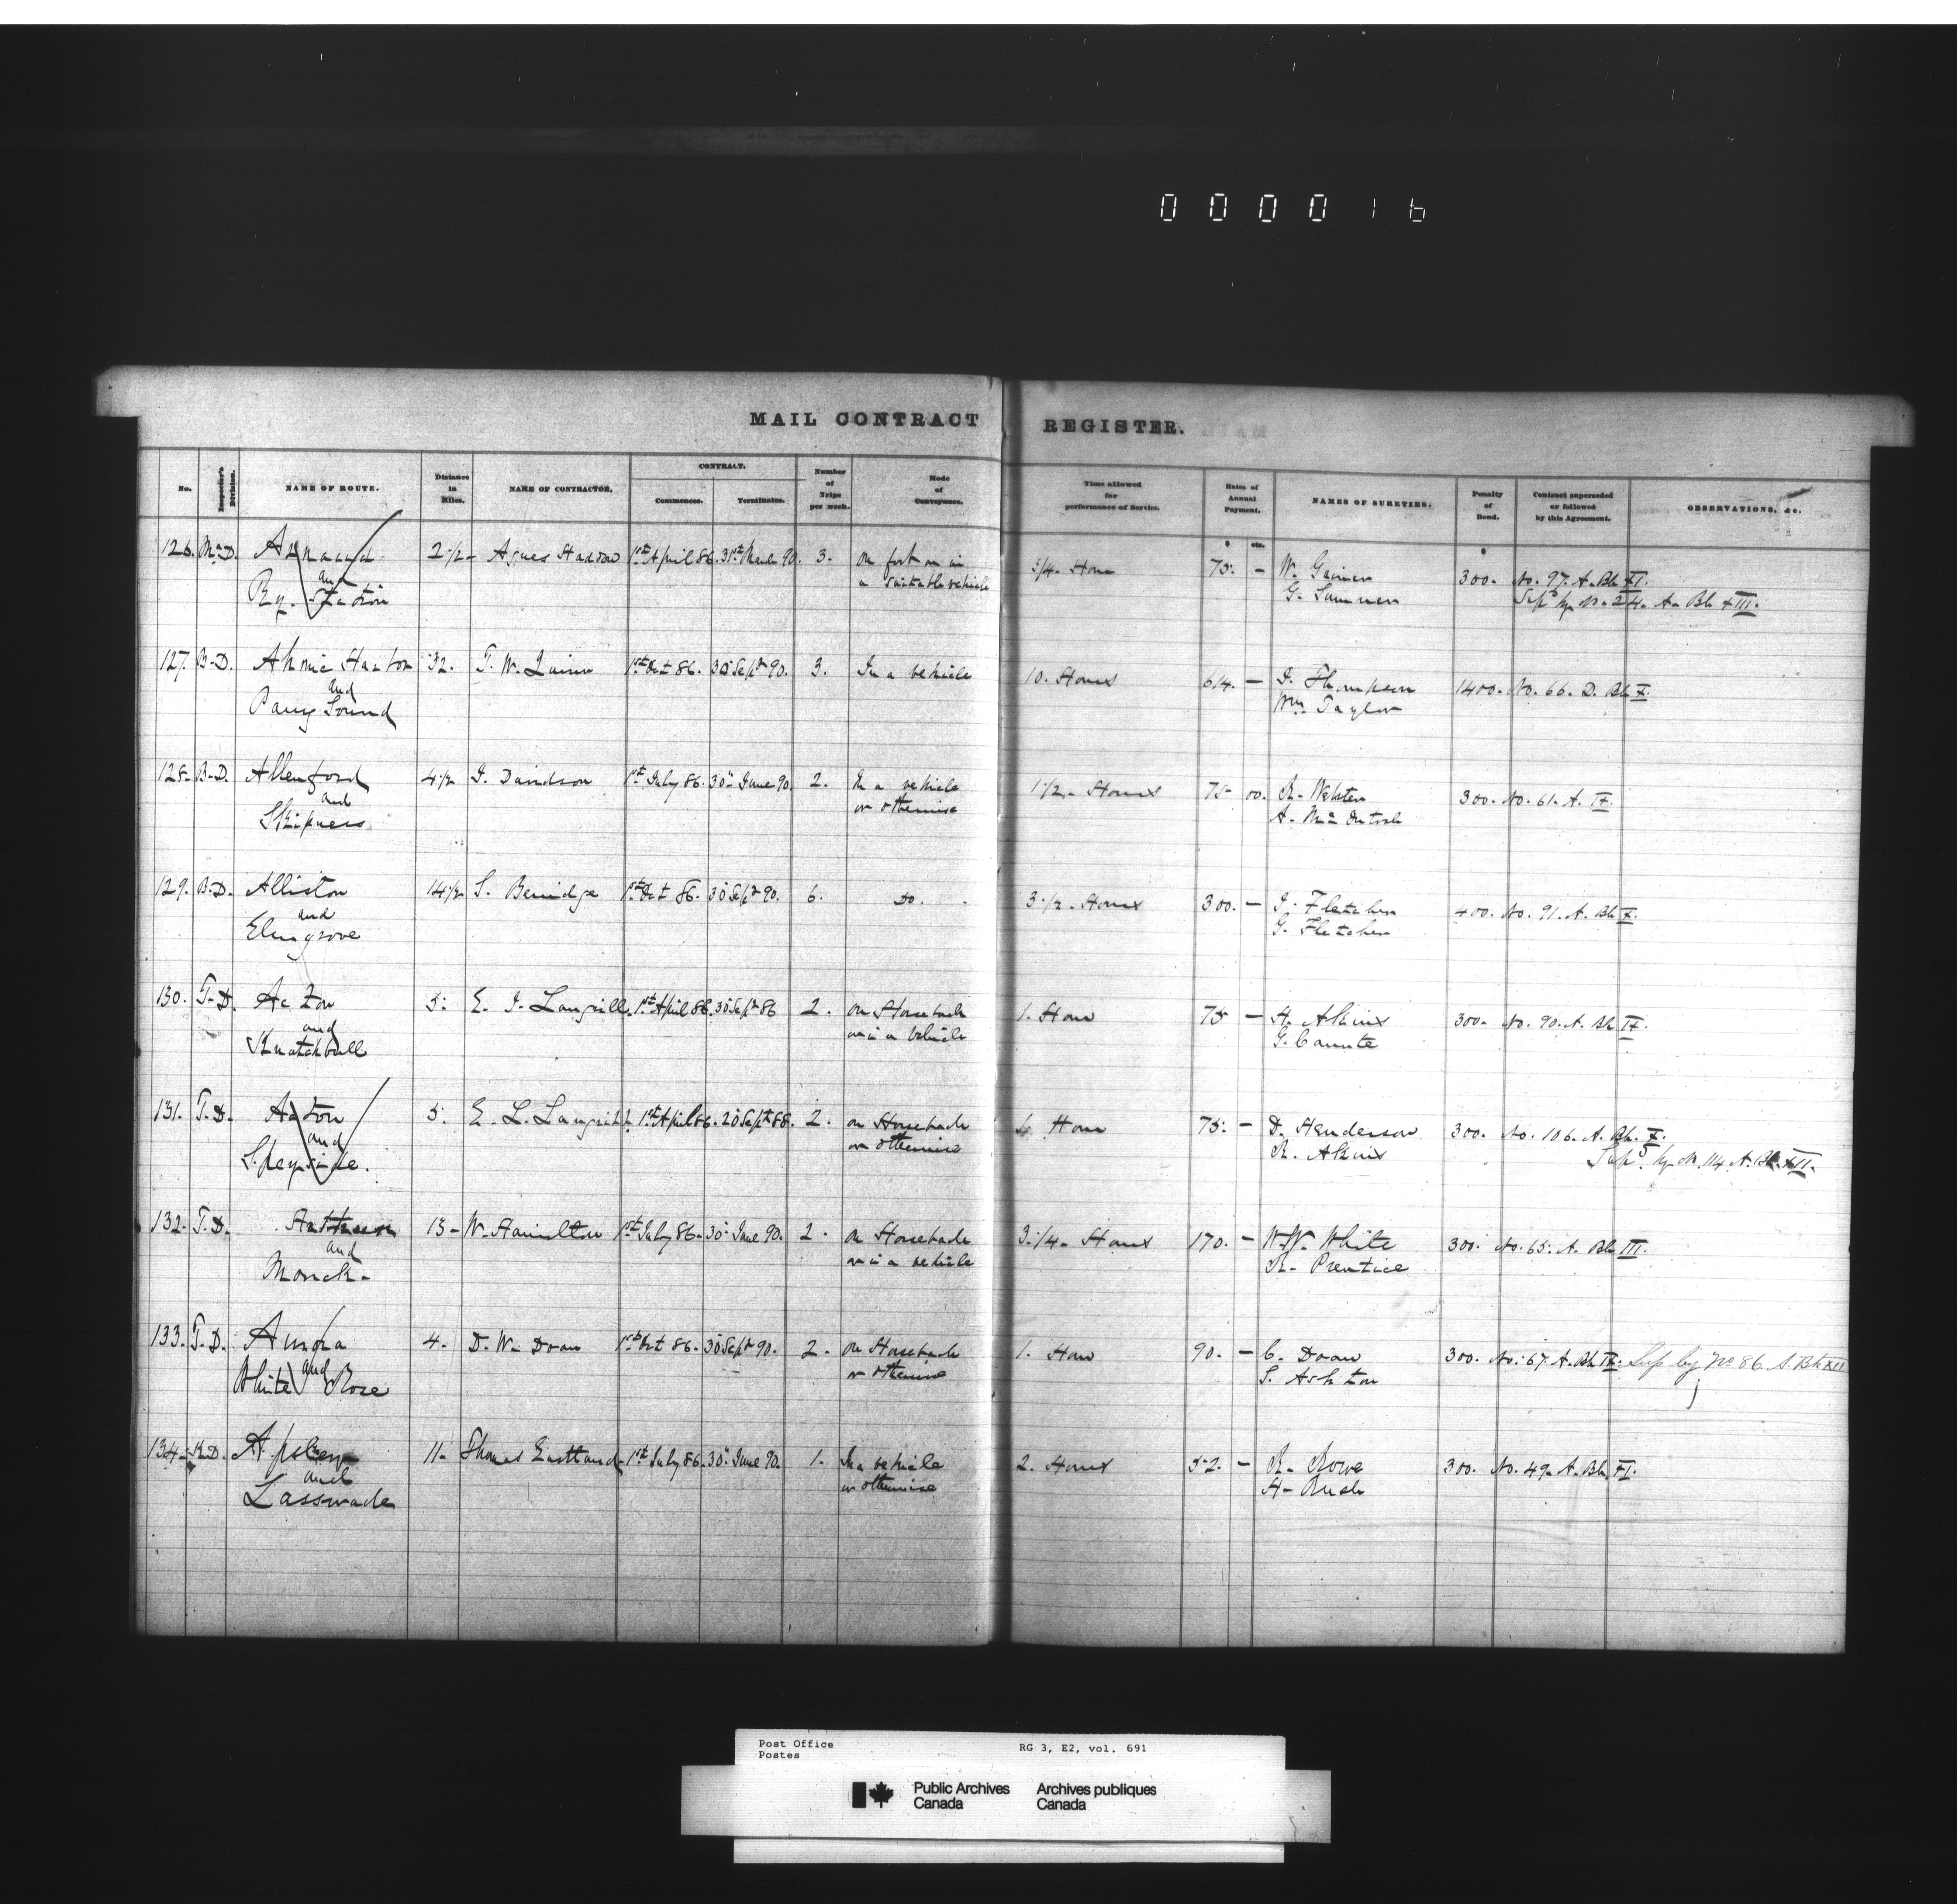 000016
MAIL CONTRACT REGISTER.
No. Inspector's Division. NAME OF ROUTE. Distance in Miles. NAME OF CONTRACTOR. CONTRACT. Commences. Terminates. Number of Trips per week. Mode of Conveyance. Time allowed for performance of Service. Rates of Annual Payment. NAMES OF SURETIES. Penalty of Bond. Contract superseded or followed by this Agreement. OBSERVATIONS, &c.
$ cts. $
126. M-D. 2 1/2 - Agnes 1st April 86. 31st March 90. 3. On foot or in 3/4 - Hour 75. - W. 300. No. 97. A. Bk XI.
and a suitable vehicle G. Supd by No 24. A. Bk XIII.
Ry. Station
127. B-D. Ahmic Harbor 32. T. W. Quinn 1st Oct 86. 30 Sept 90. 3. In a vehicle 10. Hours 614. - J. Thompson 1400. No. 66. D. Bk X.
and Wm Taylor
Parry Sound
128. B-D. Allenford 4 1/2 J. Davidson 1st July 86. 30 June 90. 2. In a vehicle 1 1/2 - Hours 75 - 00. R. Webster 300. No. 61. A. IX.
and or otherwise A. McIntosh
Skipness
129. B-D. Alliston 14 1/2 S. Beridge 1st Oct 86. 30 Sept 90. 6. Do. 3 1/2 - Hours 300. - J. Fletcher 400. No. 91. A. Bk X.
and G. Fletcher
Elmgrove
130. T-D. Acton 5. E. J. Langrill 1st April 86. 30 Sept 86 2. On Horseback 1. Hour 75 - H. Akins 300. No. 90. A. Bk IX.
and or in a Vehicle G.
Knatchbull
131. T-D. Acton 5. E. L. Langrill 1st April 86. 20 Sept 88. 2. On Horseback Hour 75. - D. Henderson 300. No. 106. A. Bk. X.
and or otherwise R. Akins Supd by No 114 A. Bk XII.
Speyside.
132. T-D. 13 - W. Hamilton 1st July 86. 30 June 90. 2. On Horseback 3 1/4 - Hours 170. - W. W. White 300. No. 65. A. Bk III.
and or in a vehicle R. Prentice
Monck.
133. T.D. Aurora 4. D. W. Doan 1st Oct 86. 30 Sept 90. 2. On Horseback 1. Hour 90. - C. Doan 300. No. 67. A. Bk IX. Sup by No 86 A. Bk XII
and or otherwise S. Ashton
White Rose
134. K-D. Apsley 11. Thomas Eastland 1st July 86. 30 June 90. 1. In a vehicle 2. Hours 52. - R. Rowe 300. No. 49. A. Bk. XI.
and or otherwise H. Rush
Lasswade
Post Office RG 3, E2, vol. 691
Postes
Public Archives Archives publiques
Canada Canada